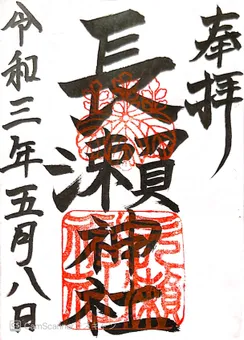 奉拝
長瀬神社
令和三年五月八日
CamScanner